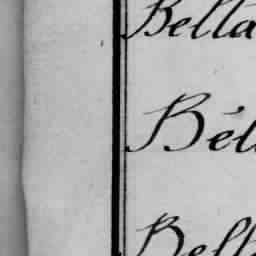 Bella
Bél
Bell